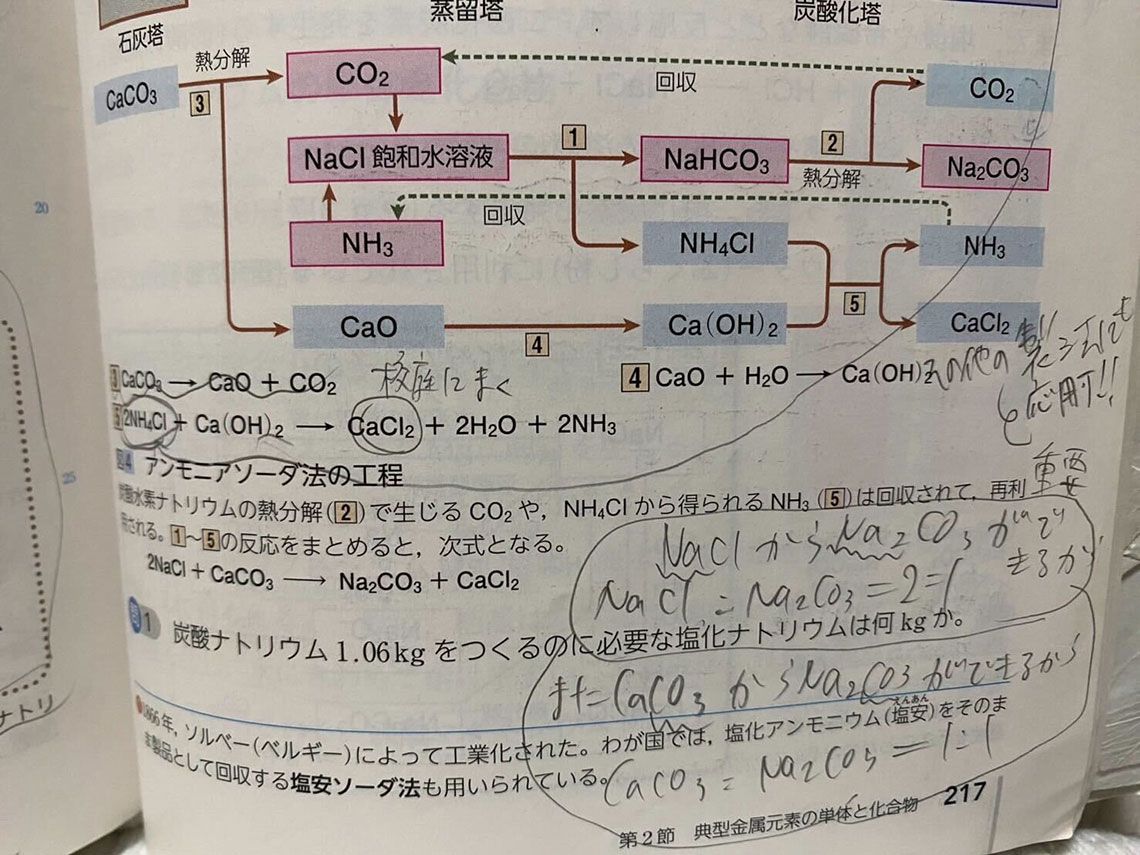 蒸留塔
炭酸化塔
石灰塔
熱分解
CaCO₃
3
CO₂
回収
CO₂
NaCl 飽和水溶液
1
NaHCO₃
2
熱分解
Na₂CO₃
回収
NH₃
NH₄Cl
NH₃
5
CaO
4
Ca(OH)₂
CaCl₂
20
25
3 CaCO₃ → CaO + CO₂
校庭にまく
4 CaO + H₂O → Ca(OH)₂
その他の
応用可!!
5 2NH₄Cl + Ca(OH)₂ → CaCl₂ + 2H₂O + 2NH₃
図4 アンモニアソーダ法の工程
重要
炭酸水素ナトリウムの熱分解(2)で生じる CO₂や，NH₄Cl から得られる NH₃(5)は回収されて，再利
用される。1〜5の反応をまとめると，次式となる。
2NaCl + CaCO₃ → Na₂CO₃ + CaCl₂
NaClからNa₂CO₃ができるから
NaCl : Na₂CO₃ = 2 = 1
問1 炭酸ナトリウム 1.06kg をつくるのに必要な塩化ナトリウムは何 kg か。
また CaCO₃からNa₂CO₃ができるから
CaCO₃ = Na₂CO₃ = 1 = 1
1866年，ソルベー(ベルギー)によって工業化された。わが国では，塩化アンモニウム(塩安)をそのま
えんあん
ま製品として回収する塩安ソーダ法も用いられている。
第2節 典型金属元素の単体と化合物 217
ナトリ